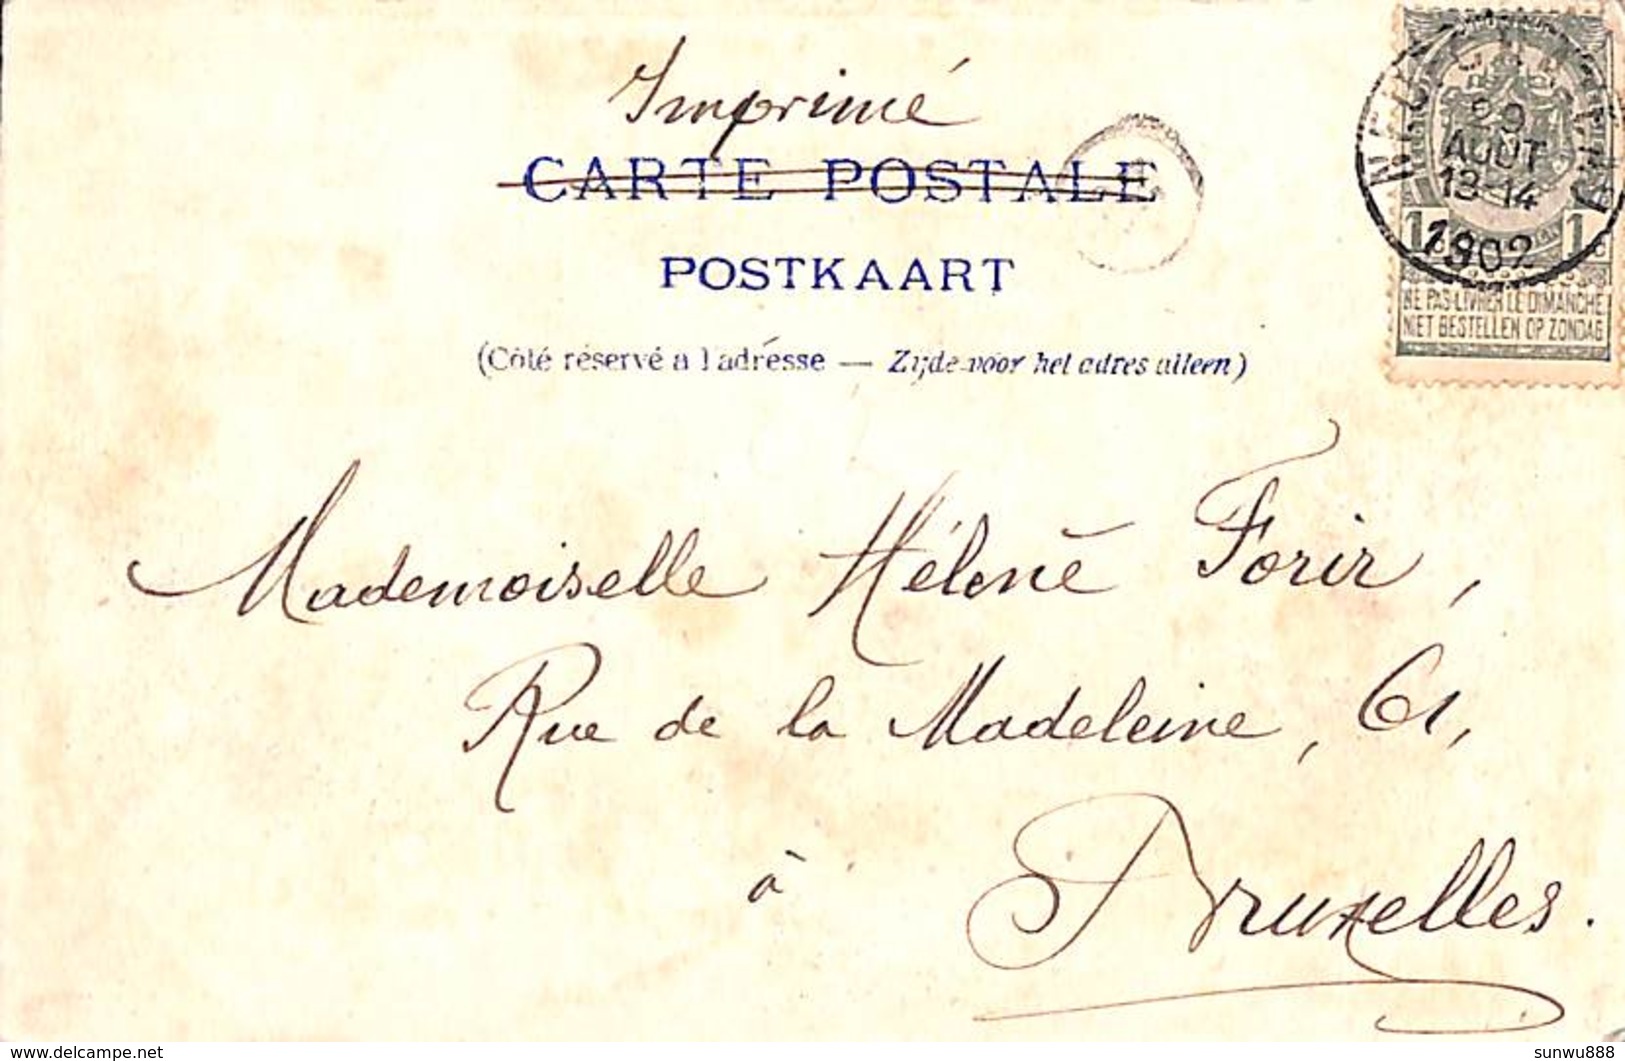 Imprimé
CARTE POSTALE
POSTKAART
(Côté réservé a l'adresse — Zijde voor het adres alleen)
AOUT
13-14
1902
1 1
NE PAS LIVRER LE DIMANCHE
NIET BESTELLEN OP ZONDAG
Mademoiselle Hélène Forir,
Rue de la Madeleine, 61,
à Bruxelles.
delcampe.net
sunwu888